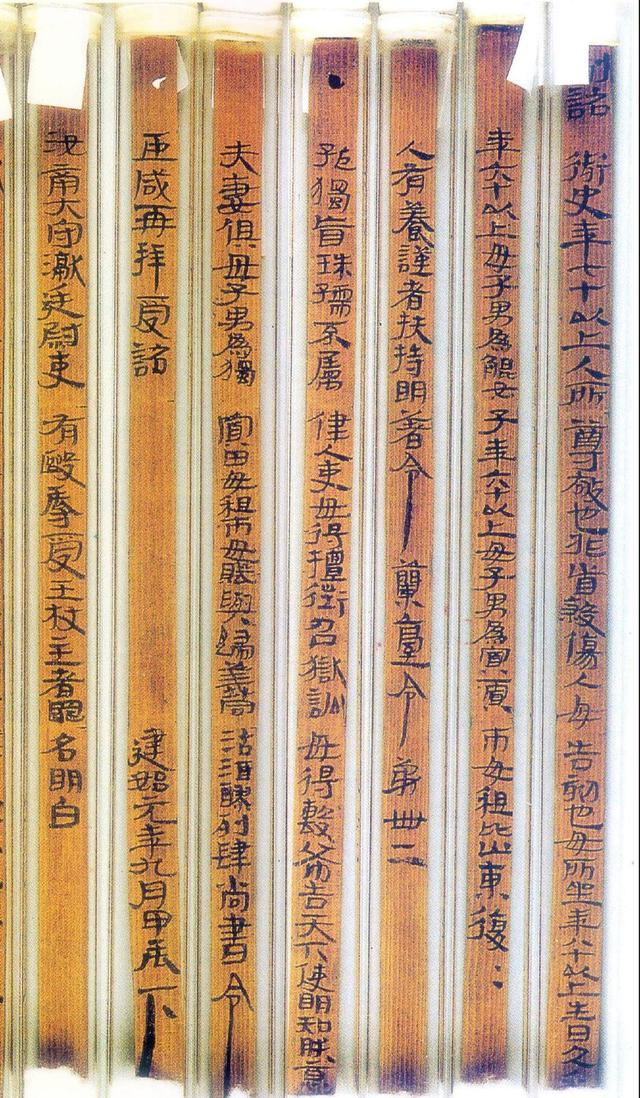 制詔御史年七十以上人所尊敬也非首殺傷人毋告劾也毋所坐年八十以上生日久乎
年六十以上毋子男為鯤女子年六十以上毋子男為寡賈市毋租比山東復:
人有養謹者扶持明著令蘭臺令第卌二
孤獨盲珠孺不屬律人吏毋得擅徵召獄訟毋得毄布告天下使明知朕意
夫妻俱毋子男為獨寡田毋租市毋賦與歸義同沽酒醪列肆尚書令
臣咸再拜受詔 建始元年九月甲辰下
汝南大守讞廷尉吏有毆辱受王杖主者罪名明白